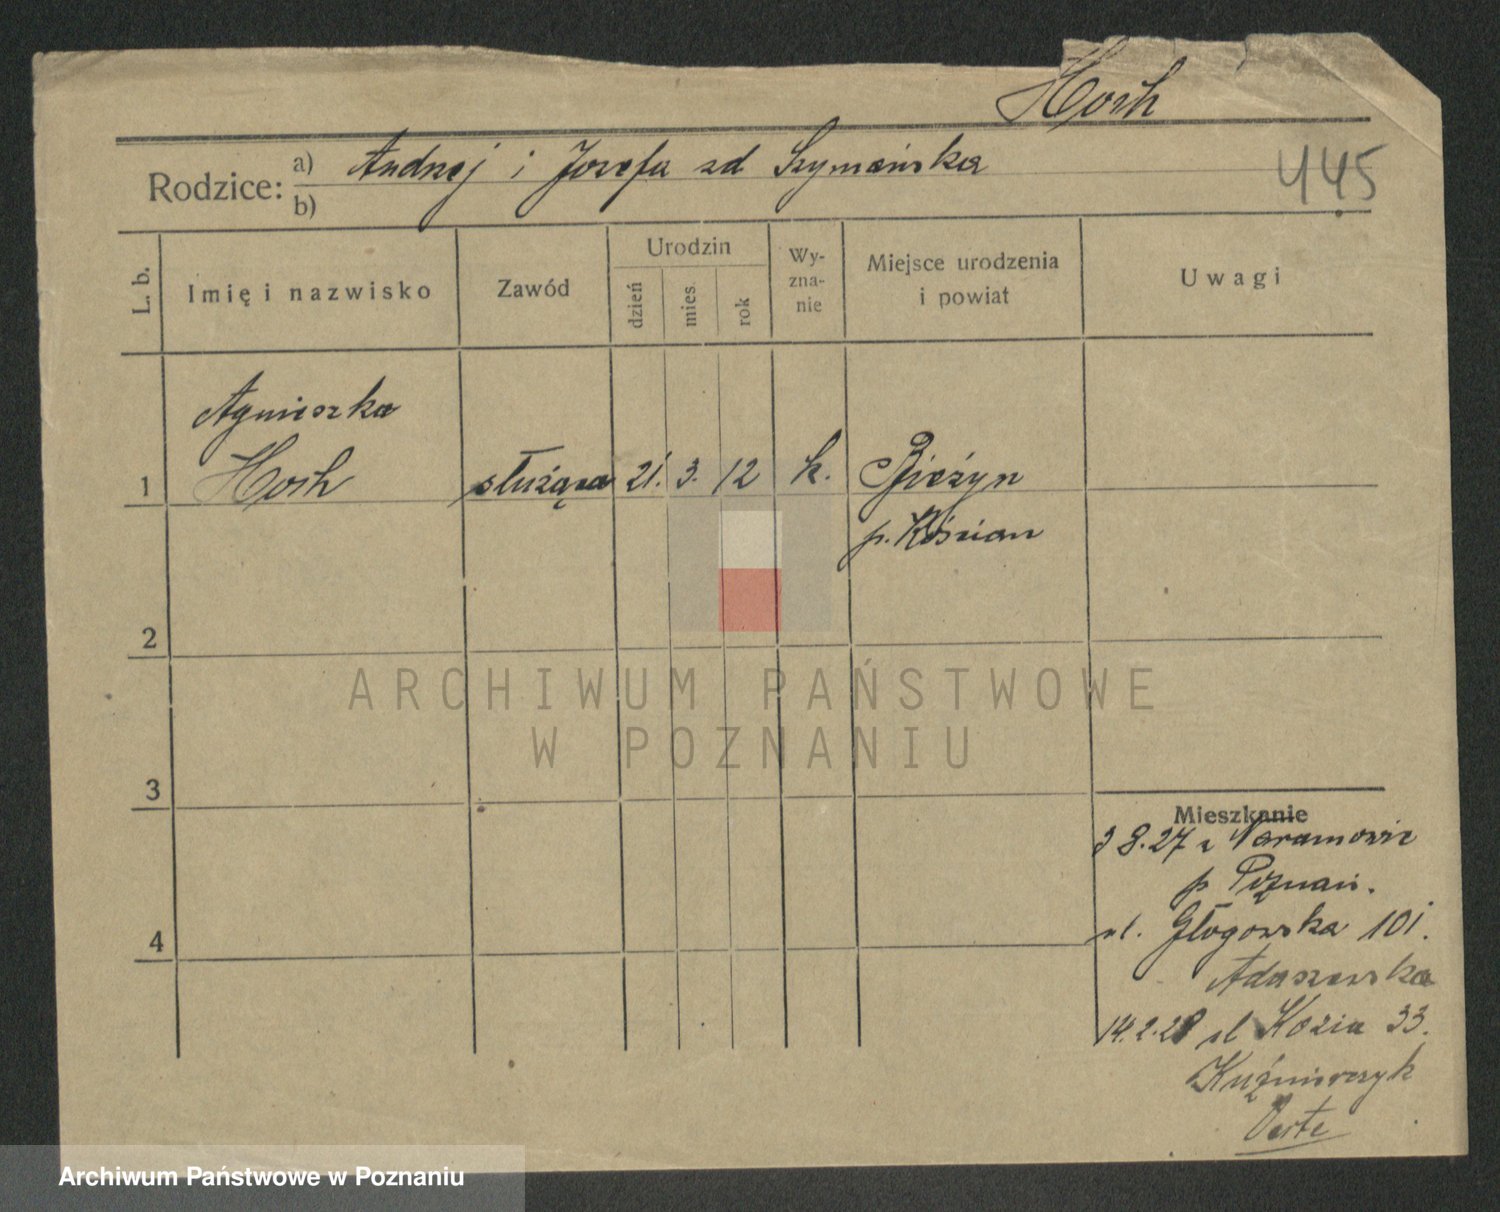 Hoch
Rodzice: a) Andrzej i Jozefa zd Szymańska
b)
445
L. b.
Imię i nazwisko
Zawód
Urodzin
dzień
mies.
rok
Wy-
zna-
nie
Miejsce urodzenia
i powiat
Uwagi
Agnieszka
1 Hoch służąca 21. 3. 12 k. Bieżyn
p. Kościan
2
ARCHIWUM PAŃSTWOWE
W POZNANIU
3
Mieszkanie
3 8.27 z Naramowic
p Poznań.
4
ul. Głogowska 101.
Adaszewska
14.2.28 ul Kozia 33.
Kuźmierczyk
Verte
Archiwum Państwowe w Poznaniu